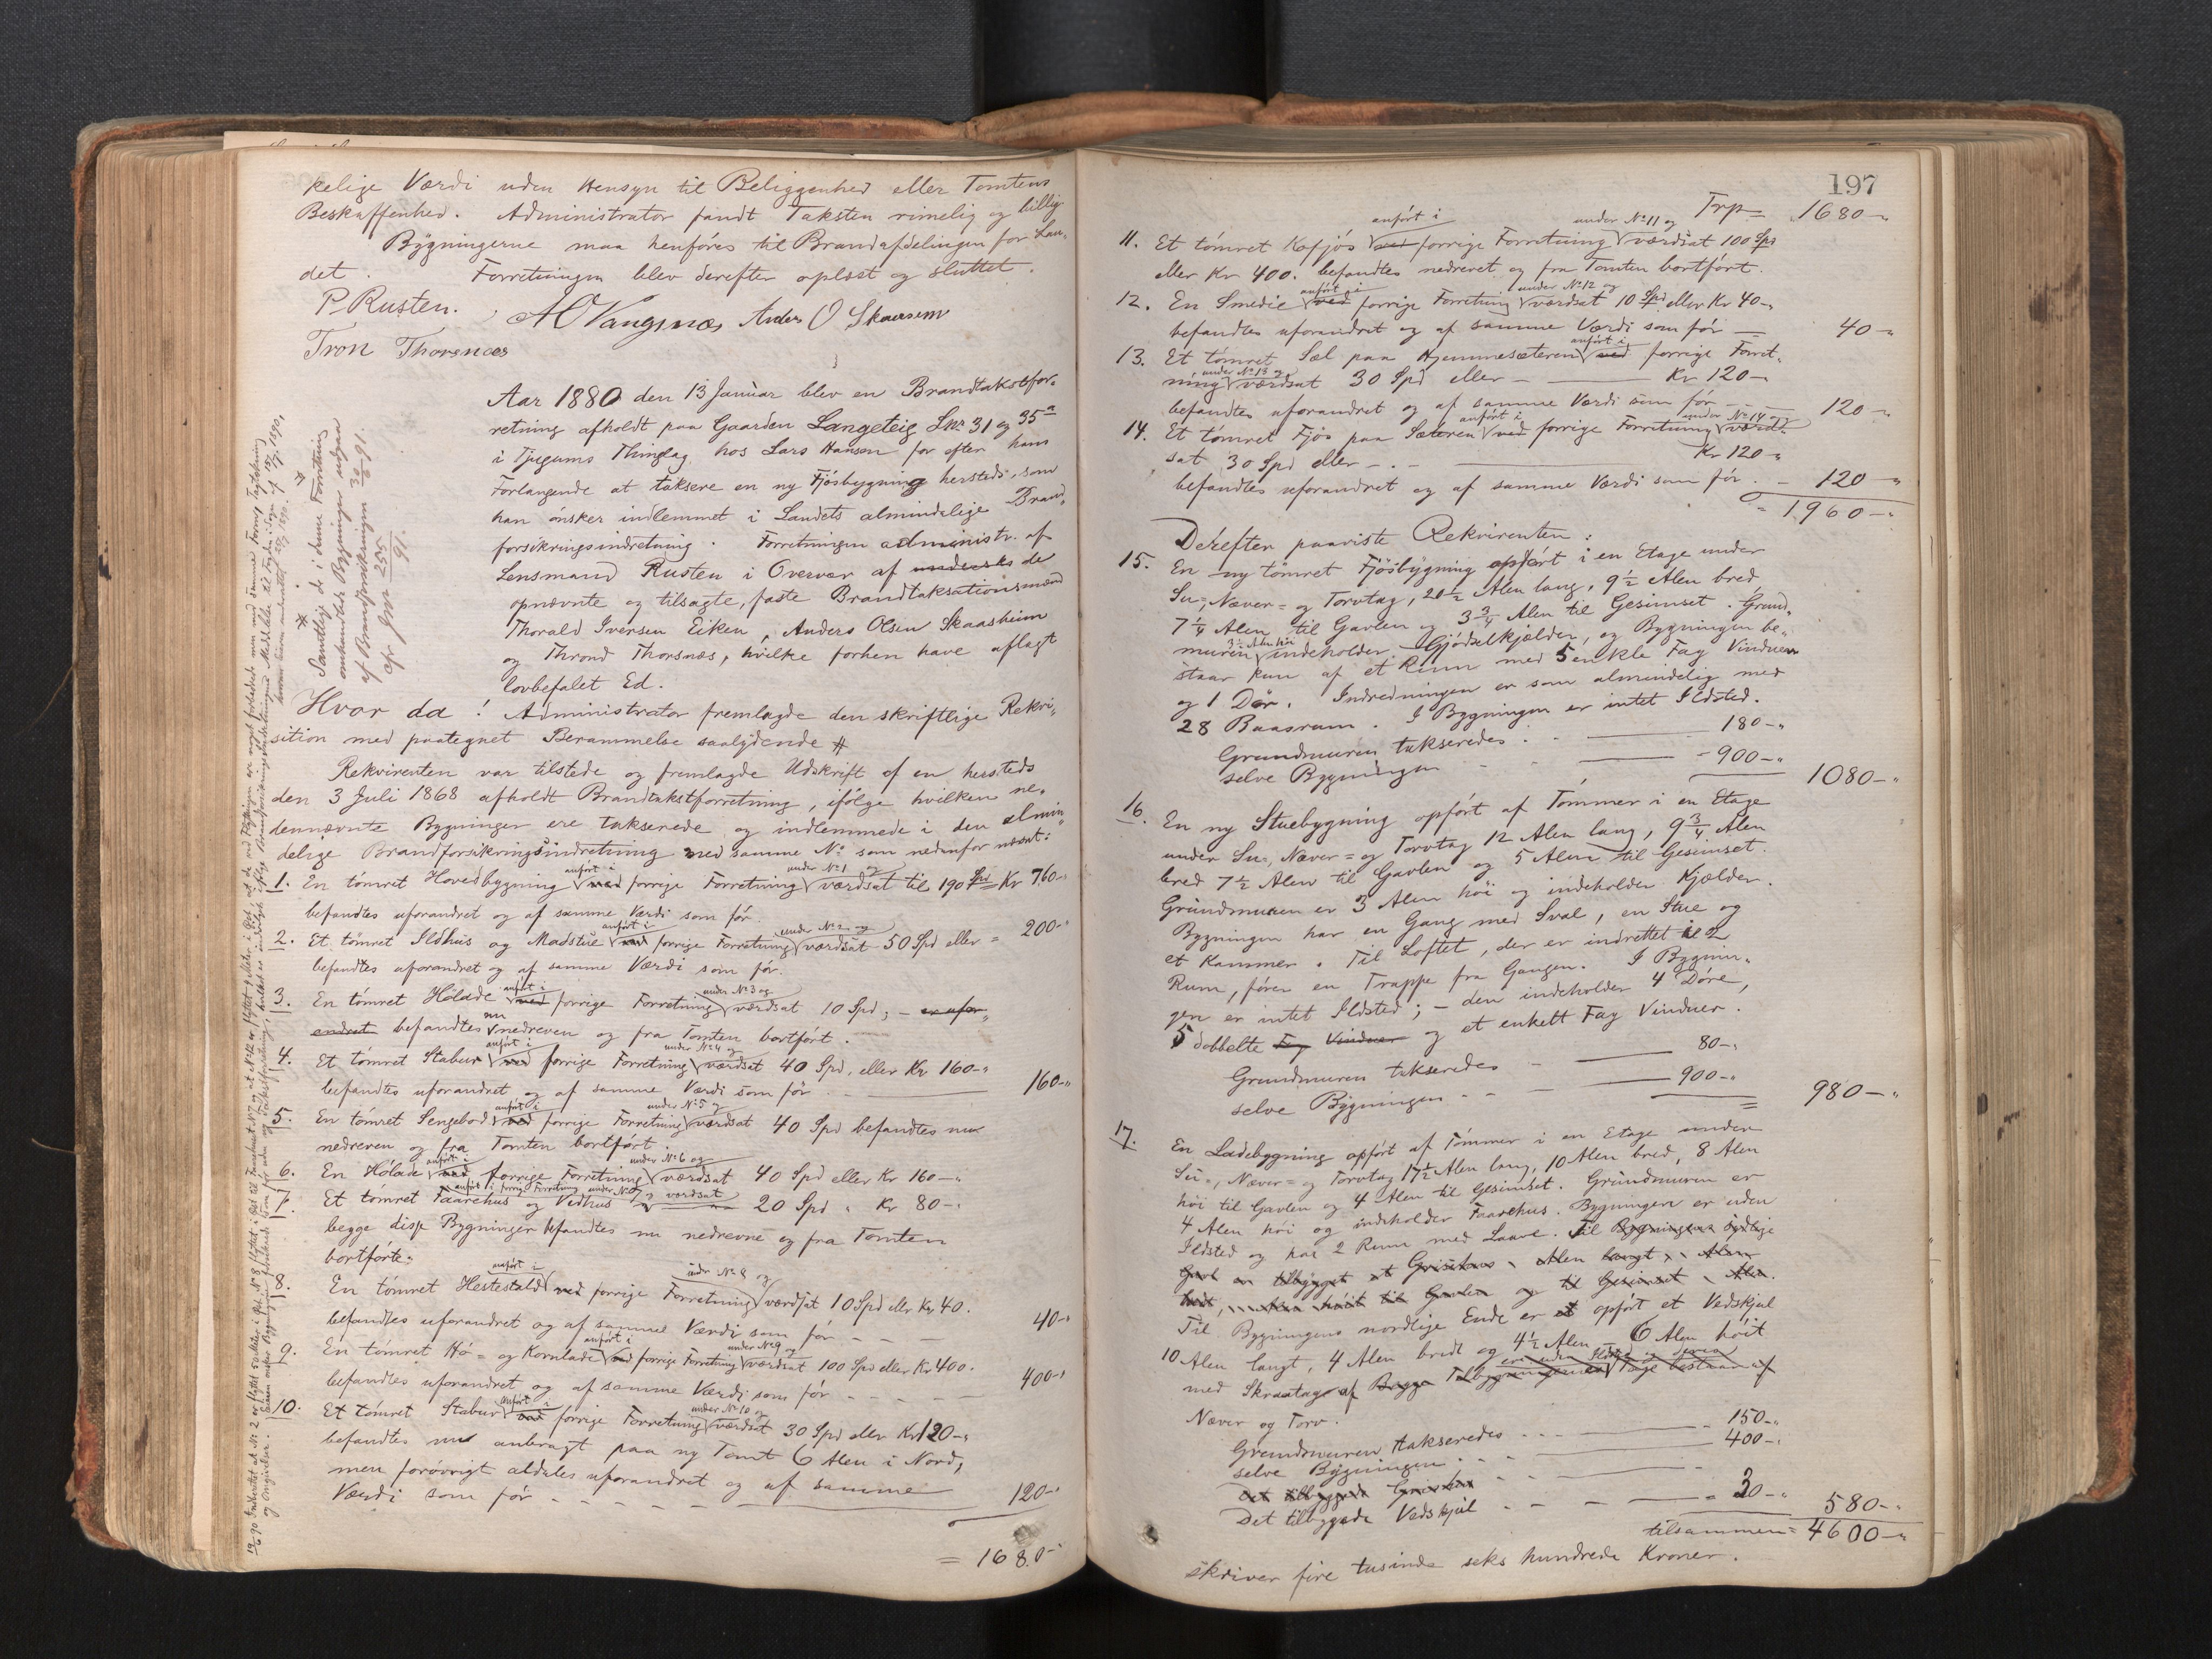 kelige Værdi uden Hensyn til Beliggenhed eller Tomtens
Beskaffenhed. Administrator fandt Taksten rimelig og billig
Bygningerne maa henføres til Brandafdelingen for Lan-
det. Forretningen blev derefter oplæst og sluttet.
P. Rusten. AO Vangsnæs Anders O Skaasem
Tron Thorsnæs
Aar 1880 den 13 Januar blev en Brandtakstfor-
retning afholdt paa Gaarden Langeteig Lnr 31 og 35a
i Tjugums Thinglag hos Lars Hansen for efter hans
Forlangende at taksere en ny Fjøsbygning hersteds, som
han ønsker indlemmet i Landets almindelige Brand-
forsikringsindretning. Forretningen administr. af
Lensmand Rusten i Overvær af de
opnævnte og tilsagte, faste Brandtaksationsmænd
Thorald Iversen Eiken, Anders Olsen Skaasheim
og Thrond Thorsnæs, hvilke forhen have aflagt
lovbefalet Ed.
Samtlige de i denne Forretning
omhandlede Bygninger udgaar
af Brandforsikringen 30/6 91.
cfr Jnr 255/91.
Hvor da! Administrator fremlagde den skriftlige Rekvi-
sition med paategnet Berammelse saalydende #
Rekvirenten var tilstede og fremlagde Udskrift af en hersteds
den 3 Juli 1868 afholdt Brandtakstforretning, ifølge hvilken ne-
dennævnte Bygninger ere takserede og indlemmede i den almin-
delige Brandforsikringsindretning med samme No som nedenfor nævnt:
1. En tømret Hovedbygning anført i ved forrige Forretning under No 1 og værdsat til 190 Spd = Kr 760-"
befandtes uforandret og af samme Værdi som før.
2. Et tømret Ildhus og Madstue anført i ved forrige Forretning under No 2 og værdsat 50 Spd eller = 200-"
befandtes uforandret og af samme Værdi som før.
3. En tømret Hølade anført i ved forrige Forretning under No 3 og værdsat 10 Spd; - er ufor-
andret befandtes nu nedreven og fra Tomten bortført.
4. Et tømret Stabur anført i ved forrige Forretning under No 4 og værdsat 40 Spd. eller Kr 160-"
befandtes uforandret og af samme Værdi som før 160-"
5. En tømret Sengebod anført i ved forrige Forretning under No 5 og værdsat 40 Spd befandtes nu
nedreven og fra Tomten bortført.
6. En Hölade anført i ved forrige Forretning under No 6 og værdsat 40 Spd eller Kr 160-"
7. Et tømret Faarehus og Vedhus anført i forrige Forretning under No 7 og værdsat 20 Spd " Kr 80-"
begge disse Bygninger befandtes nu nedrevne og fra Tomten
bortførte.
8. En tømret Hestestald anført i ved forrige Forretning under No 8 og værdsat 10 Spd eller Kr. 40.
befandtes uforandret og af samme Værdi som før - - - 40-"
9. En tømret Hø= og Kornlade anført i ved forrige Forretning under No 9 og værdsat 100 Spd eller Kr 400.
befandtes uforandret og af samme Værdi som før - - - 400-"
10. Et tømret Stabur anført i ved forrige Forretning under No 10 og værdsat 30 Spd eller Kr 120-"
befandtes nu anbragt paa ny Tomt 6 Alen i Nord,
men forøvrigt aldeles uforandret og af samme
Værdi som før - - - - - 120-"
= 1680-"
197
Trp = 1680-"
11. Et tømret Kofjøs anført i ved forrige Forretning under No 11 og værdsat 100 Spd
eller Kr 400. befandtes nedrevet og fra Tomten bortført.
12. En Smedie anført i ved forrige Forretning under No 12 og værdsat 10 Spd eller Kr 40-"
befandtes uforandret og af samme Værdi som før — 40-"
13. Et tømret Sæl paa Hjemmesæteren anført i ved forrige Forret-
ning under No 13 og værdsat 30 Spd eller - — Kr 120-"
befandtes uforandret og af samme Værdi som før - - 120-"
14. Et tømret Fjøs paa Sæteren anført i ved forrige Forretning under No 14 og værd-
sat 30 Spd eller - . - — Kr 120-"
befandtes uforandret og af samme Værdi som før. - 120-"
= 1960-"
Derefter paaviste Rekvirenten:
15. En ny tømret Fjøsbygning opført i en Etage under
Su=, Næver= og Torvtag, 20½ Alen lang, 9½ Alen bred,
7¼ Alen til Gavlen og 3¾ Alen til Gesimset. Grund-
muren indeholder Gjødselkjælder, og Bygningen be-
staar kun af et Rum med 5 enkle Fag Vinduer
og 1 Dør. Indredningen er som almindelig med
28 Baasrum. I Bygningen er intet Ildsted.
Grundmuren takseredes . - — 180-"
selve Bygningen - - — 900-" 1080-"
16. En ny Stuebygning opført af Tømmer i en Etage
under Su=, Næver= og Torvtag 12 Alen lang, 9¾ Alen
bred 7½ Alen til Gavlen og 5 Alen til Gesimset.
Grundmuren er 3 Alen høi og indeholder Kjælder.
Bygningen har en Gang med Sval, en Stue og
et Kammer. Til Loftet, der er indrettet til 2
Rum, fører en Trappe fra Gangen. I Bygnin-
gen er intet Ildsted; - den indeholder 4 Døre,
5 dobbelte Fag Vinduer og et enkelt Fag Vinduer.
Grundmuren takseredes - — 80-"
selve Bygningen - - — 900-" = 980-"
17. En Ladebygning opført af Tømmer i en Etage under
Su=, Næver= og Torvtag 17½ Alen lang, 10 Alen bred, 8 Alen
høi til Gavlen og 4 Alen til Gesimset. Grundmuren er
4 Alen høi og indeholder Faarehus. Bygningen er uden
Ildsted og har 2 Rum med Laave. Til Bygningens sydlige
Gavl er tilbygget et Grisehus " Alen langt, " Alen
bredt, " Alen høit til Gavlen og til Gesimset " Alen.
Til Bygningens nordlige Ende er opført et Vedskjul
10 Alen langt, 4 Alen bredt og 4½ Alen - 6 Alen høit
med Skraatag af Begge Tilbygningerne ere uden Ildsted og deres Tage bestaar af
Næver og Torv.
Grundmuren takseredes - - - — 150-"
selve Bygningen . - - — 400-"
Det tilbyggede Grisehus - - —
Det tilbyggede Vedskjul - - - — 30-" 580-"
tilsammen = 4600-"
skriver fire tusinde seks hundrede Kroner.